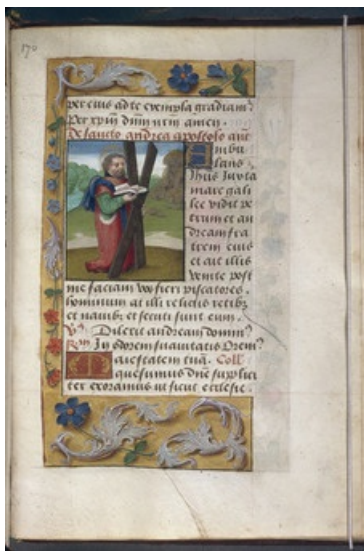 170
per eius ad te exempla gradiam?
per xpm dnm nrm amen.
De sancto andrea apostolo ant
Ambu
lans
Ihus iuxta
mare gali
lee vidit pe
trum et an
dream fra
trem eius
et ait illis
venite post
me faciam vos fieri piscatores
hominum at illi relictis retib;
et navib; et secuti sunt eum.
Dilexit andream domin?
In odorem suavitatis Orem?
Maiestatem tuā. Coll
quesumus dne supplici
ter exoramus ut sicut ecclesie